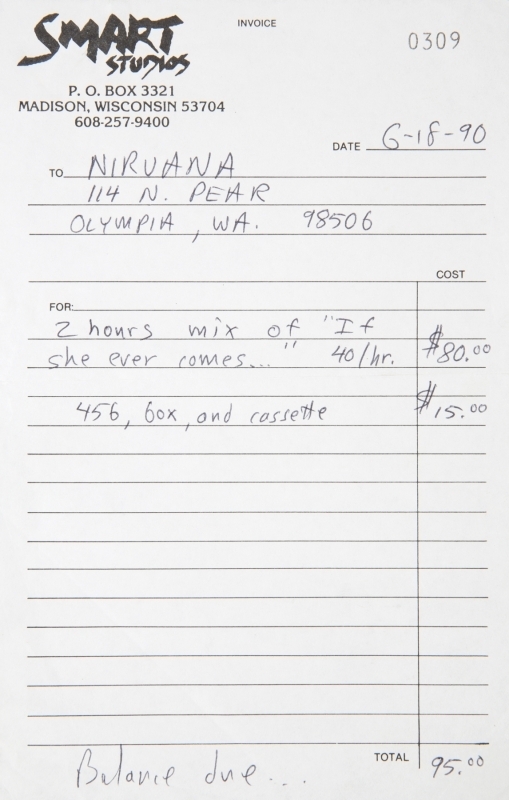 SMART STUDIOS
INVOICE
0309
P. O. BOX 3321
MADISON, WISCONSIN 53704
608-257-9400
DATE 6-18-90
TO NIRVANA
114 N. PEAR
OLYMPIA, WA. 98506
COST
FOR:
2 hours mix of "If
she ever comes..." 40/hr. $80.00
456, box, and cassette $15.00
Balance due... TOTAL 95.00